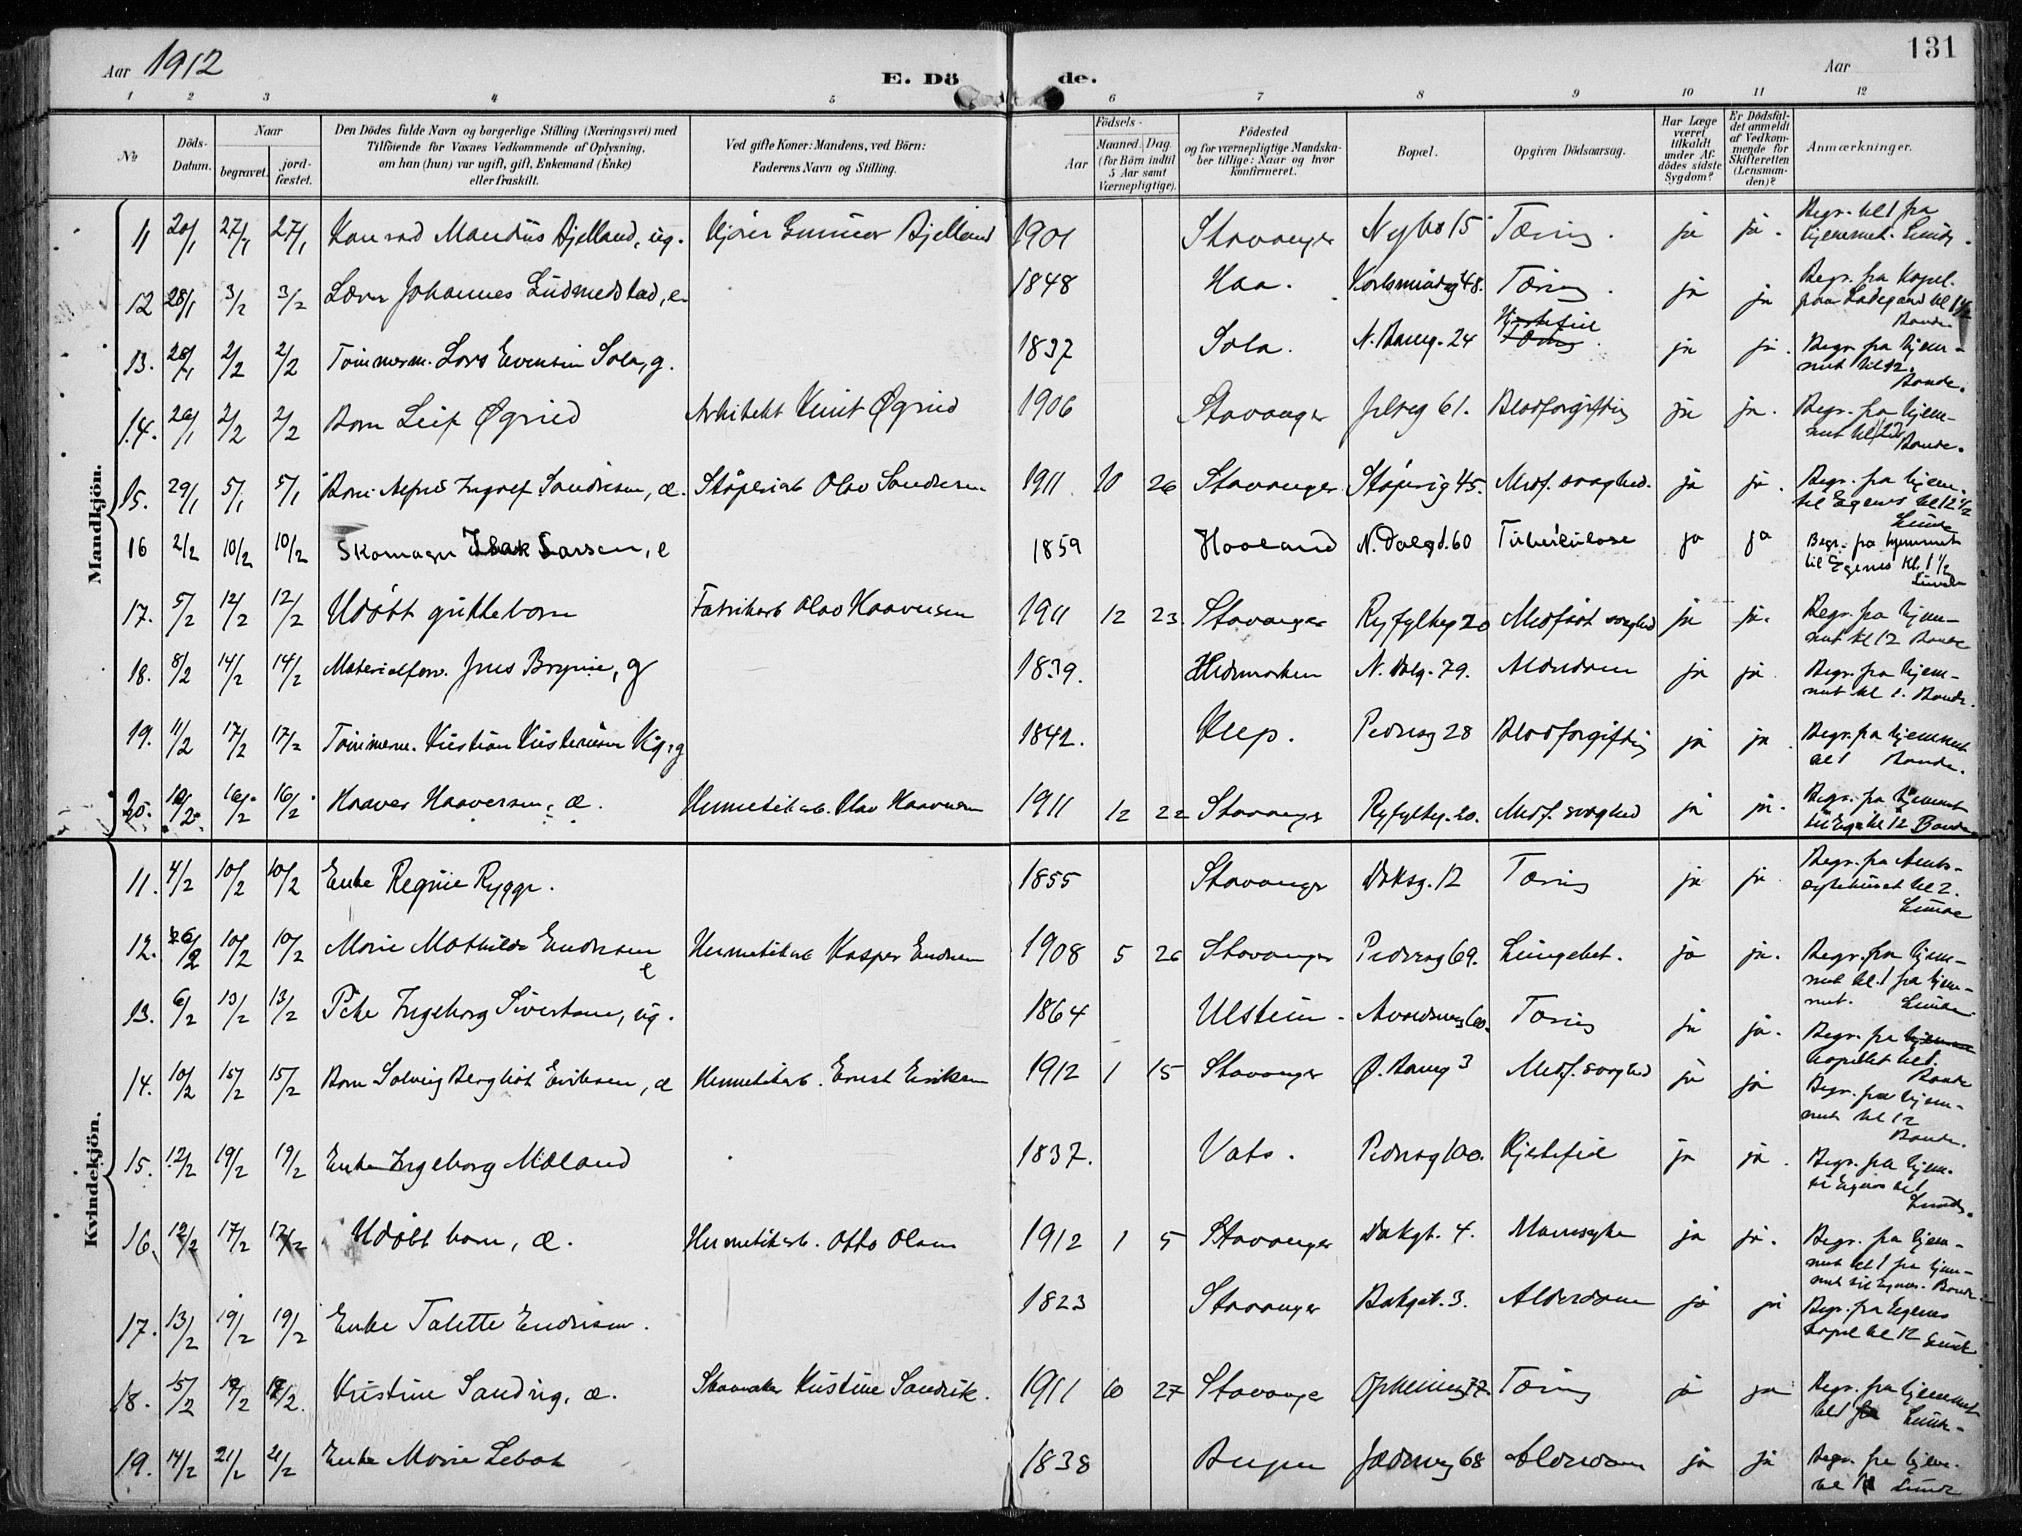 Aar 1912
E. Dö
de.
Aar
131
1 2 3 4 5 6 7 8 9 10 11 12
№
Döds-
Datum.
Naar
begravet.
jord-
fæstet.
Den Dödes fulde Navn og borgerlige Stilling (Næringsvei) med
Tilföiende for Voxnes Vedkommende af Oplysning,
om han (hun) var ugift, gift, Enkemand (Enke)
eller fraskilt.
Ved gifte Koner: Mandens, ved Börn:
Faderens Navn og Stilling.
Födsels-
Aar
Maaned. Dag.
(for Börn indtil
5 Aar samt
Værnepligtige).
Födested
og for værnepligtige Mandska-
ber tillige: Naar og hvor
konfirmeret.
Bopæl.
Opgiven Dödsaarsag.
Har Læge
været
tilkaldt
under Af-
dödes sidste
Sygdom?
Er Dödsfal-
det anmeldt
af Vedkom-
mende for
Skifteretten
(Lensman-
den)?
Anmærkninger.
Mandkjön.
11 20/1 27/1 27/1 Konrad Mandus Bjelland, ug. Gunnar Bjelland 1901 Stavanger Nybo 15 Tæring. ja ja. Begr. kl 1 fra
hjemmet. Lunde.
12 28/1 3/2 3/2 Johannes e. 1848 Haa. 48. Tæring. ja ja Begr. fra kapel.
paa Ladegaard kl 1 1/2
Bonde
13. 28/1 2/2 2/2 Tømmerm. Lars Eventsen Sola, g. 1837 Sola. N. Bang. 24 Hjertefeil ja ja. Begr. fra hjem-
met kl 12.
Bonde.
14. 26/1 2/2 2/2 Barn Leif Øgreid Arkitekt Knut Øgreid 1906 Stavanger 61. Blodforgiftnig ja ja. Begr. fra hjem-
met kl 12
Bonde.
15. 29/1 5/1 5/1 Barn Ingolf Sandersen, æ. Støperiarb Olav Sandersen 1911 10 26 Stavanger Støperig 45. Medf. svaghed. ja ja. Begr. fra hjem.
til Egenes kl 12 1/2
Lunde
16 2/2 10/2 10/2 Skomager Isak Larsen, e 1859 Haaland N. Dalgd. 60 Tuberkulose ja ja Begr. fra hjemmet
til Egenes kl. 1 1/2
Lunde
17. 5/2 12/2 12/2 Udøbt guttebarn Fabrikarb Olav Haaversen 1911 12 23. Stavanger Ryfylkeg 20 Medfødt svaghed ja ja. Begr. fra hjem-
met kl 12 Bonde
18. 8/2 14/2 14/2 Materialforv. Jens Bryne, g 1839. Hedemarken N. Dalg. 79. Alderdom ja ja Begr. fra hjem-
met kl 1. Bonde.
19. 11/2 17/2 17/2 Tømmerm. Kristian Kristensen g 1842. Klep. Pedersg 28 Blodforgiftnig ja ja. Begr. fra hjemmet
kl 1 Bonde.
20. 10/2 16/2 16/2 Haaver Haaversen, æ. Hermetikarb. Olav Haaversen 1911 12 22 Stavanger Ryfylkeg. 20. Medf. svaghed ja ja. Begr. fra hjemmet
kl 12 Bonde
Kvindekjön.
11. 4/2 10/2 10/2 Enke Regine Rygge. 1855 Stavanger 12 Tæring ja ja Begr. fra Amts-
sygehuset kl 2.
Lunde
12. 6/2 10/2 10/2 Marie Mathilde Endresen
e Hermetikarb Kasper Endresen 1908 5 26 Stavanger Pedersg 69. Lungebet. ja ja. Begr. fra hjem-
met kl. 1 fra hjem-
met. Lunde
13. 6/2 13/2 13/2 Pike Ingeborg Sivertsen, ug. 1864 Utstein. 60. Tæring ja ja. Begr. fra
kapellet kl 1.
Bonde
14. 10/2 15/2 15/2 Barn Solveig Bergliot Eriksen, æ Hermetikarb. Ernst Eriksen 1912 1 15 Stavanger Ø. Bang 3 Medf. svaghed ja ja Begr. fra hjem-
met kl 12
Bonde.
15. 12/2 19/2 19/2 Enke Ingeborg Mæland 1837. Vats. Pedersg 100. Hjertefeil ja ja. Begr. fra hjem.
til Egenes kl 1
Lunde.
16. 12/2 17/2 17/2 Udøbt barn, æ. Hermetikarb. Otto Olsen 1912 1 5 Stavanger Bakgt. 4. ja ja. Begr. fra hjem-
met kl 1 fra hjem-
met til Egenes. Bonde.
17. 13/2 19/2 19/2 Enke Talette Endresen. 1823 Stavanger Bakgt. 3. Alderdom ja ja Begr. fra Egenes
kapel kl 12 Lunde
18. 15/2 19/2 19/2 Kristine Sandvig, æ. Kristine Sandvik. 1911 10 27 Stavanger 77. Tæring ja ja Begr. fra hjemmet
kl 1 Lunde.
19. 14/2 21/2 21/2 Enke Marie 1838 Bergen 68 Alderdom ja ja Begr. fra hjem.
kl Lunde